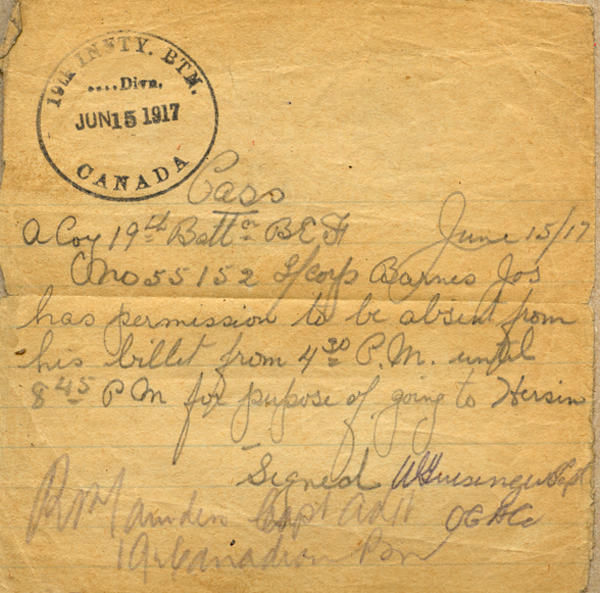 19th INFTY. BTN.
....Divn.
JUN 15 1917
CANADA
Pass
A Coy 19th Battn BEF June 15/17
No 55152 L/Corp Barnes Jos
has permission to be absent from
his billet from 4 30 P.M. until
8 45 P M for pupose of going to Hersin
Signed Capt
Capt Adjt
19th Canadian Bn